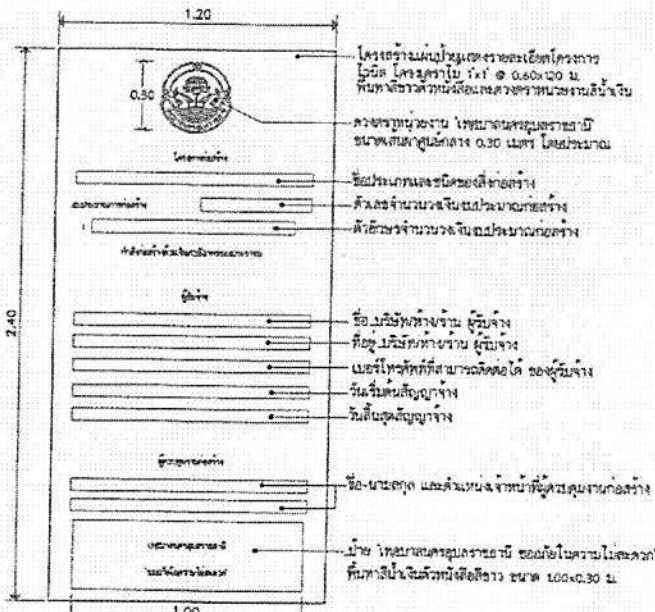 1.20
โครงสร้างแผ่นป้ายแสดงรายละเอียดโครงการ
ไวนิล โครงคร่าวไม้ 1"x1" @ 0.60x1.20 ม.
พื้นทาสีขาวตัวหนังสือและดวงตราหน่วยงานสีน้ำเงิน
0.30
ดวงตราหน่วยงาน "เทศบาลนครอุบลราชธานี"
ขนาดเส้นผ่าศูนย์กลาง 0.30 เมตร โดยประมาณ
โครงการก่อสร้าง
ชื่อประเภทและชนิดของสิ่งก่อสร้าง
ตัวเลขจำนวนวงเงินงบประมาณก่อสร้าง
ตัวอักษรจำนวนวงเงินงบประมาณก่อสร้าง
2.40
ผู้รับจ้าง
ชื่อ บริษัท/ห้าง/ร้าน ผู้รับจ้าง
ที่อยู่ บริษัท/ห้าง/ร้าน ผู้รับจ้าง
เบอร์โทรศัพท์ที่สามารถติดต่อได้ ของผู้รับจ้าง
วันเริ่มต้นสัญญาจ้าง
วันสิ้นสุดสัญญาจ้าง
ผู้ควบคุมงานก่อสร้าง
ชื่อ-นามสกุล และตำแหน่งเจ้าหน้าที่ผู้ควบคุมงานก่อสร้าง
เทศบาลนครอุบลราชธานี
ป้าย "เทศบาลนครอุบลราชธานี ขออภัยในความไม่สะดวก"
พื้นทาสีน้ำเงินตัวหนังสือสีขาว ขนาด 1.00x0.30 ม.
1.00